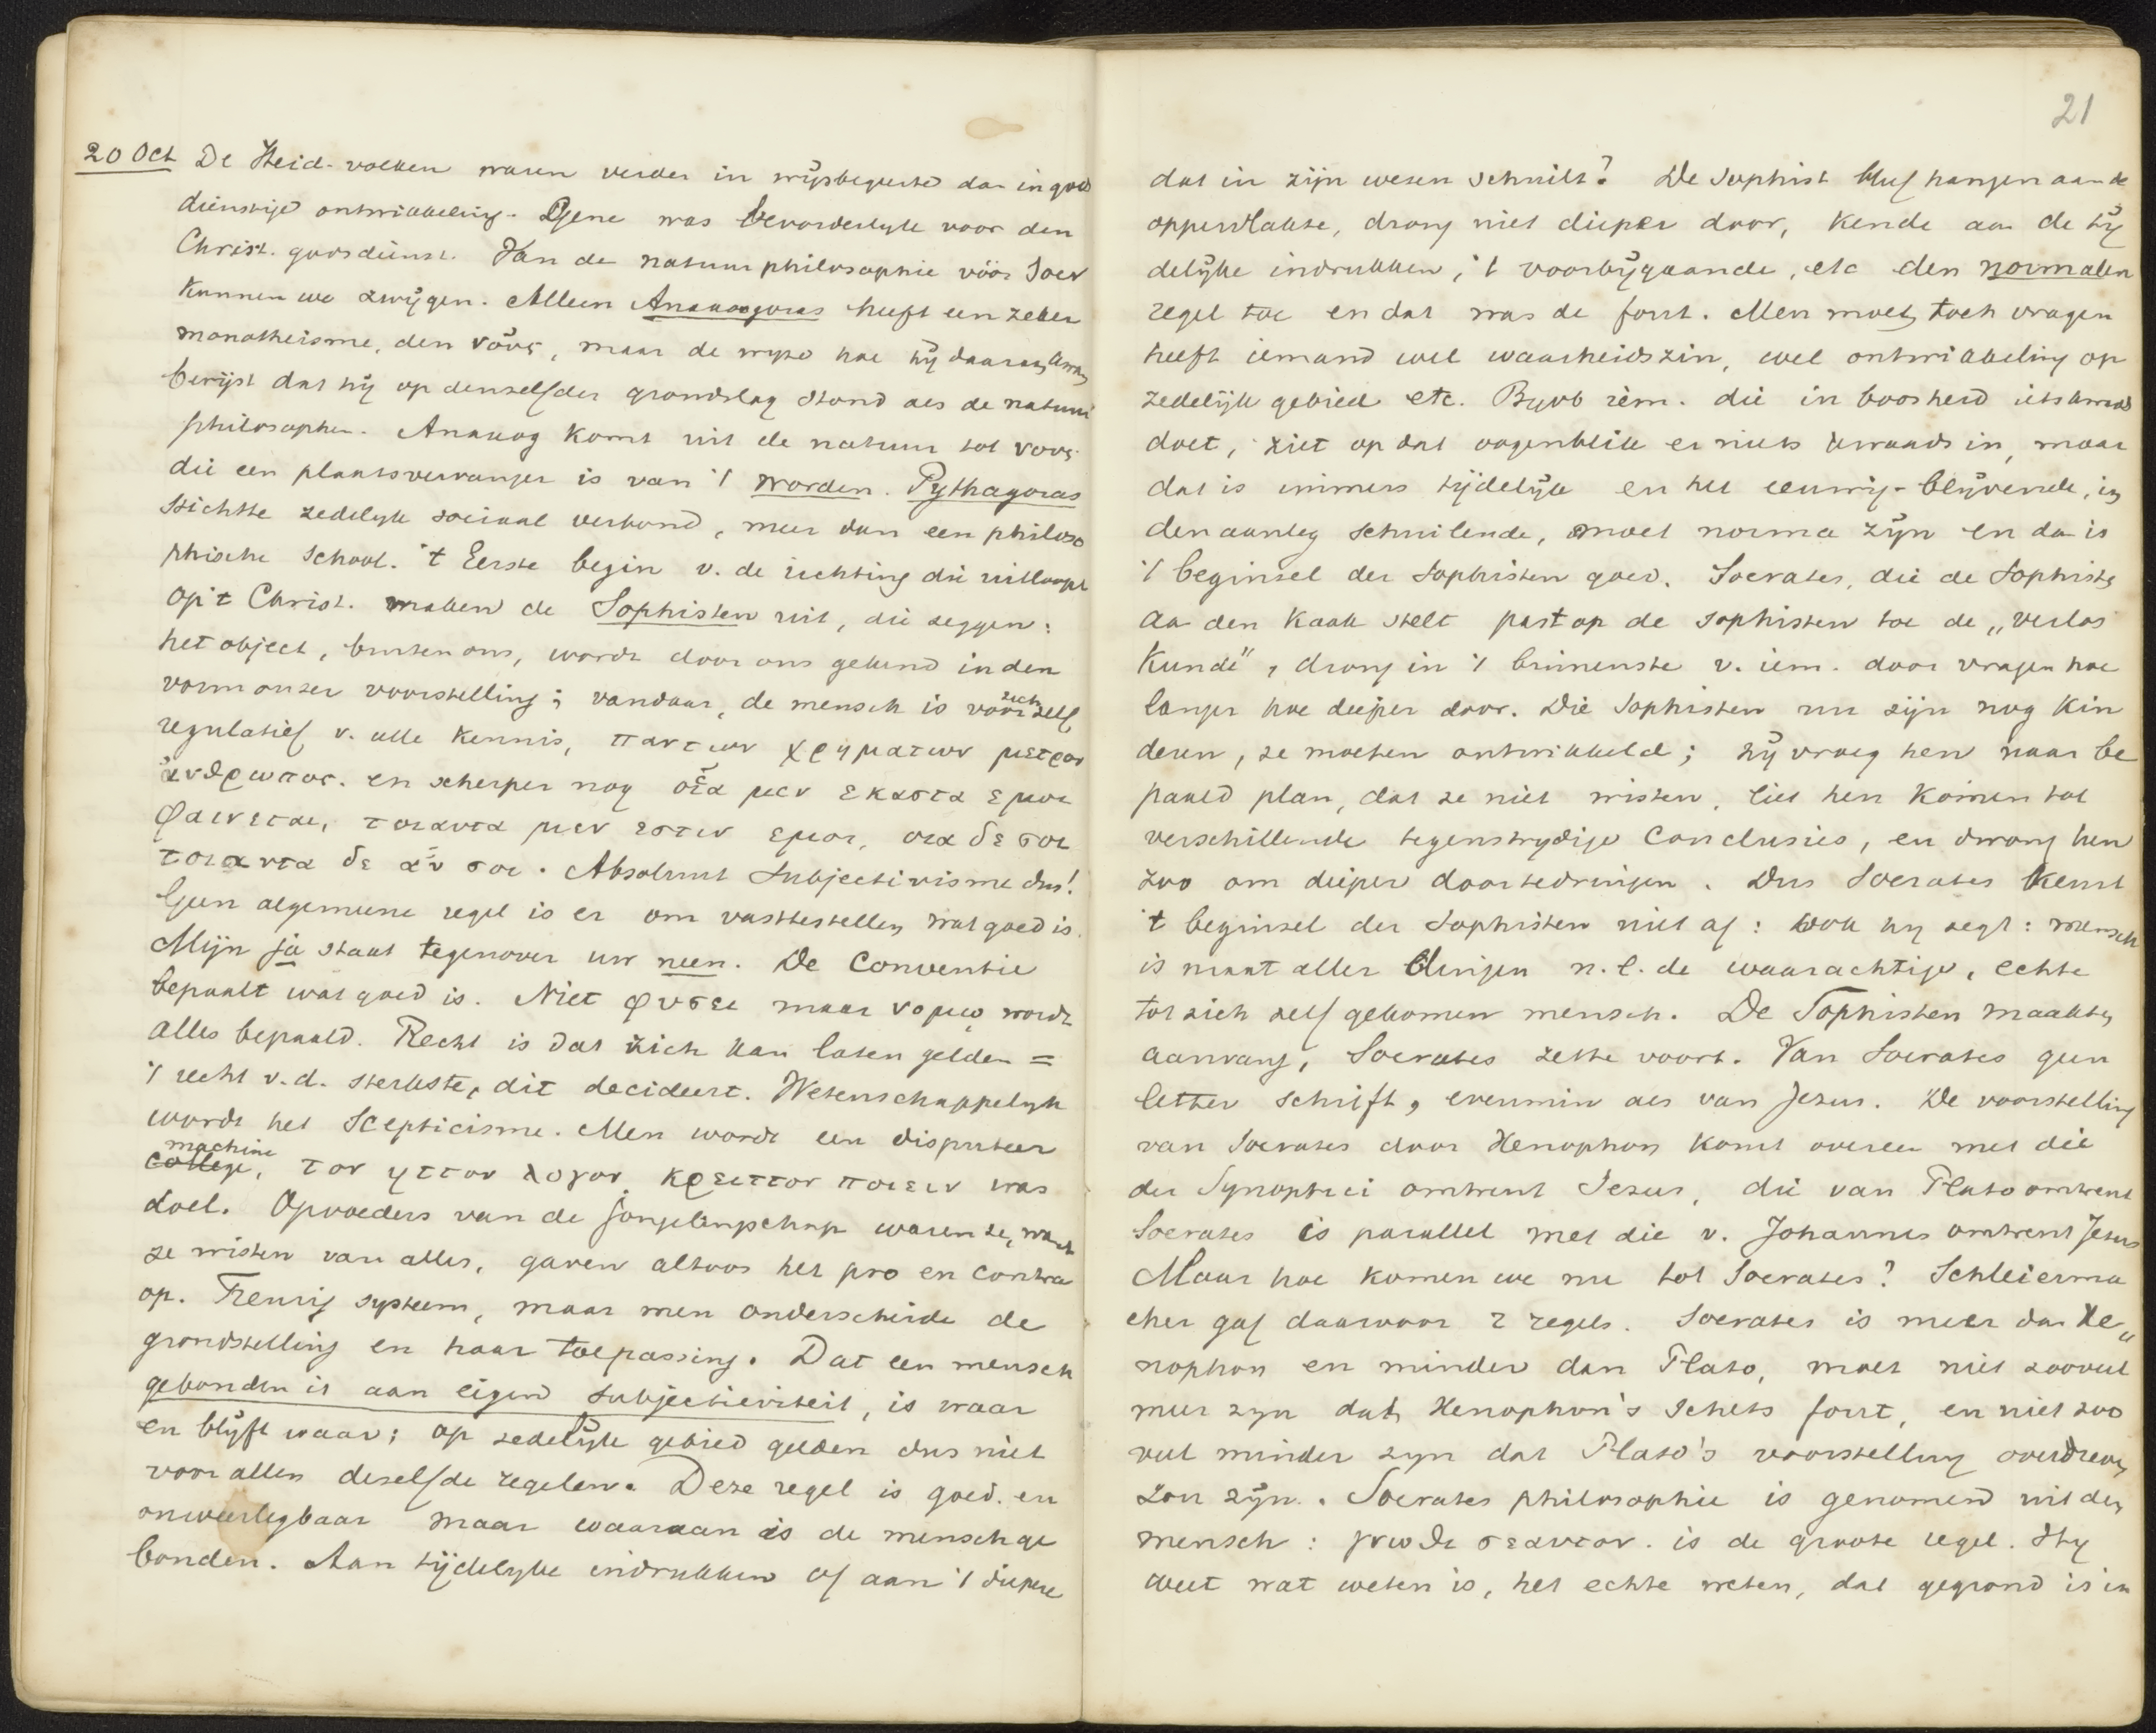 20 Oct De Heid. volken waren verder in wijsbegeerte dan in gods
dienstige ontwikkeling. Gene was bevorderlijk voor den
Christ. godsdienst. Van de natuurphilosophie vóór Socr
kunnen we zwijgen. Alleen Anaxagoras heeft een zeker
monotheisme, den νοῦς, maar de wijze hoe hij daaraan kwam
bewijst dat hij op denzelfden grondslag stond als de natuur
philosophen. Anaxag komt uit de natuur tot νους
die een plaatsvervanger is van 't worden. Pythagoras
stichtte zedelijk sociaal verbond, meer dan een philoso
phische school. 't Eerste begin v. de richting die uitloopt
op 't Christ. maken de Sophisten uit, die zeggen:
het object, buiten ons, wordt door ons gekend in den
vorm onzer voorstelling; vandaar, de mensch is voor zich zelf
regulatief v. alle kennis, παντων χρηματων μετρον
ἀνθρωπος. en scherper nog οἷα μεν εκαστα εμοι
φαινεται, τοιαυτα μεν εστιν εμοι, οια δε σοι
τοιαυτα δε αὖ σοι. Absoluut Subjectivisme dus!
Geen algemeene regel is er om vasttestellen wat goed is.
Mijn ja staat tegenover uw neen. De Conventie
bepaalt wat goed is. Niet φυσει maar νομῳ wordt
alles bepaald. Recht is dat zich kan laten gelden =
't recht v.d. sterkste, dit decideert. Wetenschappelijk
wordt het Scepticisme. Men wordt een disputeer
machine
college, τον ηττον λογον κρειττον ποιειν was
doel. Opvoeders van de jongelingschap waren ze, want
ze wisten van alles, gaven altoos het pro en contra
op. Treurig systeem, maar men onderscheide de
grondstelling en haar toepassing. Dat een mensch
gebonden is aan eigen subjectieviteit, is waar
en blijft waar; op zedelijk gebied gelden dus niet
voor allen dezelfde regelen. Deze regel is goed en
onweerlegbaar maar waaraan is de mensch ge
bonden. Aan tijdelijke indrukken of aan 't diepere
21
dat in zijn wezen schuilt? De Sophist bleef hangen aan de
oppervlakte, drong niet dieper door, kende aan de tij
delijke indrukken, 't voorbijgaande, etc den normalen
regel toe en dat was de fout. Men moet toch vragen
heeft iemand wel waarheidszin, wel ontwikkeling op
zedelijk gebied etc. Bijvb iem. die in boosheid iets kwaads
doet, ziet op dat oogenblik er niets kwaads in, maar
dat is immers tijdelijk en het eeuwig-blijvende, in
den aanleg schuilende, moet norma zijn en dan is
't beginsel der Sophisten goed. Socrates, die de Sophisten
aan den kaak stelt past op de sophisten toe de „verlos
kunde", drong in 't binnenste v. iem. door vragen hoe
langer hoe dieper door. Die Sophisten nu zijn nog kin
deren, ze moeten ontwikkeld; hij vroeg hen naar be
paald plan, dat ze niet wisten, liet hen komen tot
verschillende tegenstrijdige conclusies, en dwong hen
zoo om dieper doortedringen. Dus Socrates keurt
't beginsel der Sophisten niet af: ook hij zegt: mensch
is maat aller dingen n.l. de waarachtige, echte
tot zich zelf gekomen mensch. De Sophisten maakten
aanvang, Socrates zette voort. Van Socrates geen
letter schrift, evenmin als van Jezus. De voorstelling
van Socrates door Xenophon komt overeen met die
der Synoptici omtrent Jezus, die van Plato omtrent
Socrates is parallel met die v. Johannes omtrent Jezus
Maar hoe komen we nu tot Socrates? Schleierma
cher gaf daarvoor 2 regels. Socrates is meer dan Xe„
nophon en minder dan Plato, moet niet zooveel
meer zyn dat Xenophon's schets fout, en niet zoo
veel minder zyn dat Plato's voorstelling overdreven
zou zijn. Socrates philosophie is genomen uit den
mensch: γνωθι σεαυτον. is de groote regel. Hij
weet wat weten is, het echte weten, dat gegrond is in